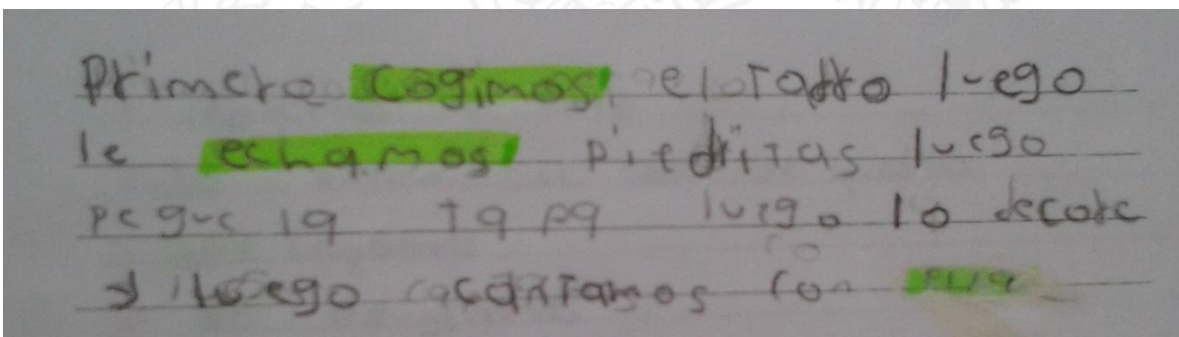 Primero Cogimos el tarro luego
le echamos piedritas luego
pegue la tapa luego lo decore
y luego cantamos con